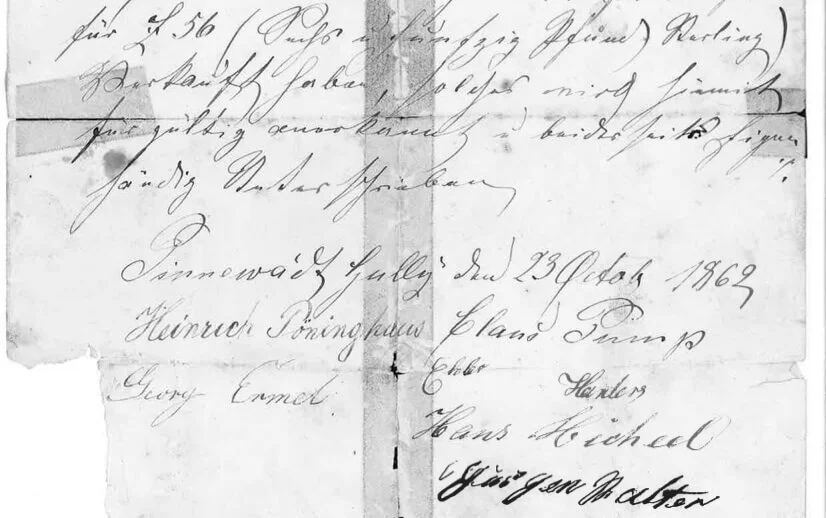 für £ 56 (Sechs u fünfzig Pfund Sterling)
Verkauft haben, solches wird hiemit
für gültig anerkannt u beiderseits Eigen
händig Unterschrieben
Pinnewädt Gully den 23 Octob 1862
Heinrich Pöninghaus Claus Pump
Georg Ermel Harders
Hans Hicheel
Jürgen Walter